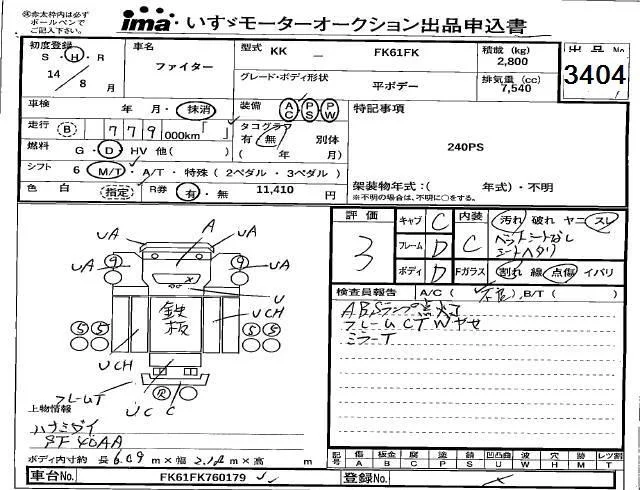 ※赤太枠内は必ず
ボールペンで
ご記入下さい。
ima いすゞモーターオークション出品申込書
初度登録
S・H・R
14 / 8 月
車名
ファイター
型式 KK — FK61FK
積載 (kg)
2,800
出品No.
3404
グレード・ボディ形状
平ボデー
排気量 (cc)
7,540
車検 年 月・抹消
装備 AC PS PW
特記事項
走行 B 779,000km「 」
タコグラフ
有・無 別体
( 年 月)
燃料 G・D・HV 他( )
240PS
シフト 6 M/T・A/T・特殊(2ペダル・3ペダル)
色 白 (指定) R券 有・無 11,410 円
架装物年式:( 年式)・不明
※不明の場合は、不明に○をする。
評価
3
キャブ C
フレーム D
ボディ D
内装 C
Fガラス
汚れ 破れ ヤニ スレ
ベットシートなし
シートヘタリ
割れ 線 点傷 イバリ
検査員報告 A/C( 不良 ), B/T( )
ABSランプ点灯
フレームCTWヤセ
ミラーT
UA A UA
UA 9 9 UA
U
鉄板
UCH
5 5 5 5
UCH
フレームT
R
UC C
上物情報
ハナミダイ
5F40AA
ボディ内寸約 長 6.09 m×幅 2.12 m×高 m
記号 傷 板金 腐 塗 錆 凹凸曲 波 穴 跡 レツ割
A B C P S U W H M T
車台No. FK61FK760179
登録No.